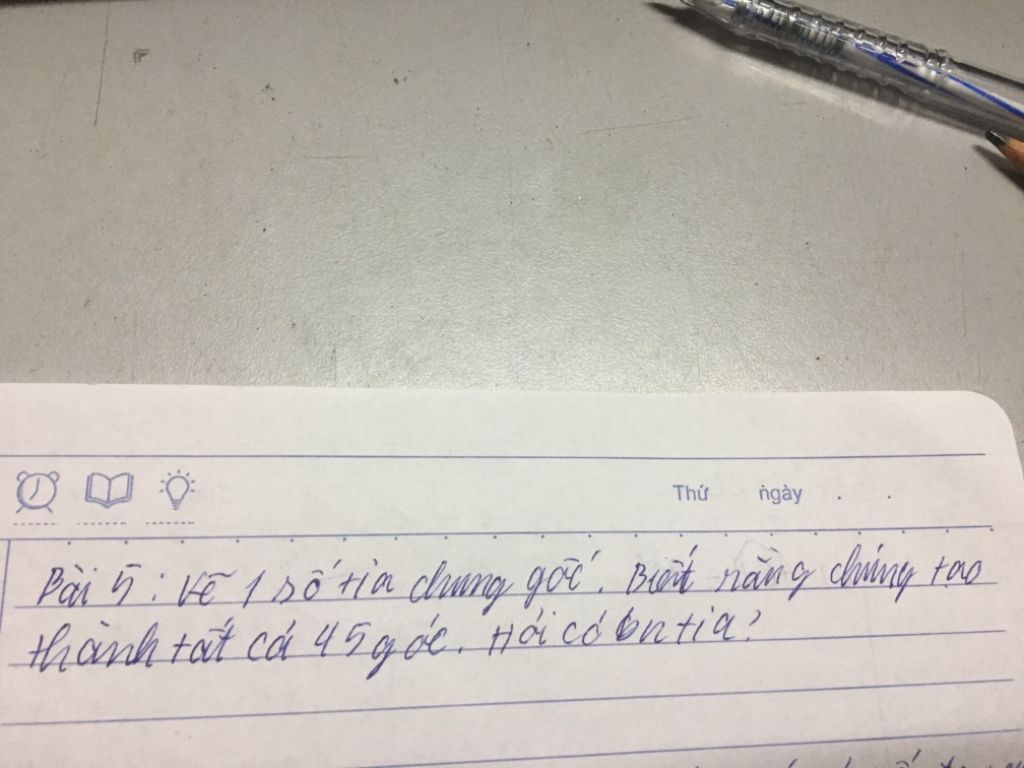 Thứ ngày . .
Bài 5: Vẽ 1 số tia chung gốc. Biết rằng chúng tạo
thành tất cả 45 góc. Hỏi có bn tia?